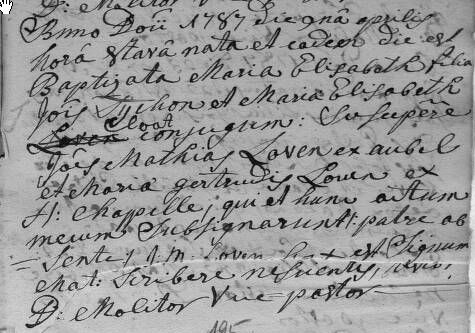 D: Molitor
Anno Doii 1787 die 9nâ aprilis
horâ 8tavâ nata et eadem die est
Baptizata Maria Elisabeth filia
Jois Tychon et Maria Elisabeth
Loven Cloot conjugum: Suscepêre
Jois Mathias Loven ex aubel
et Maria gertrudis Loven ex
H: Chappelle, qui et hunc actum
mecum Subsignarunt: patre ab
= Sente j: m: Loven hoc est Signum
Mat: Scribere nescientis,
D: Molitor Vice-pastor
195